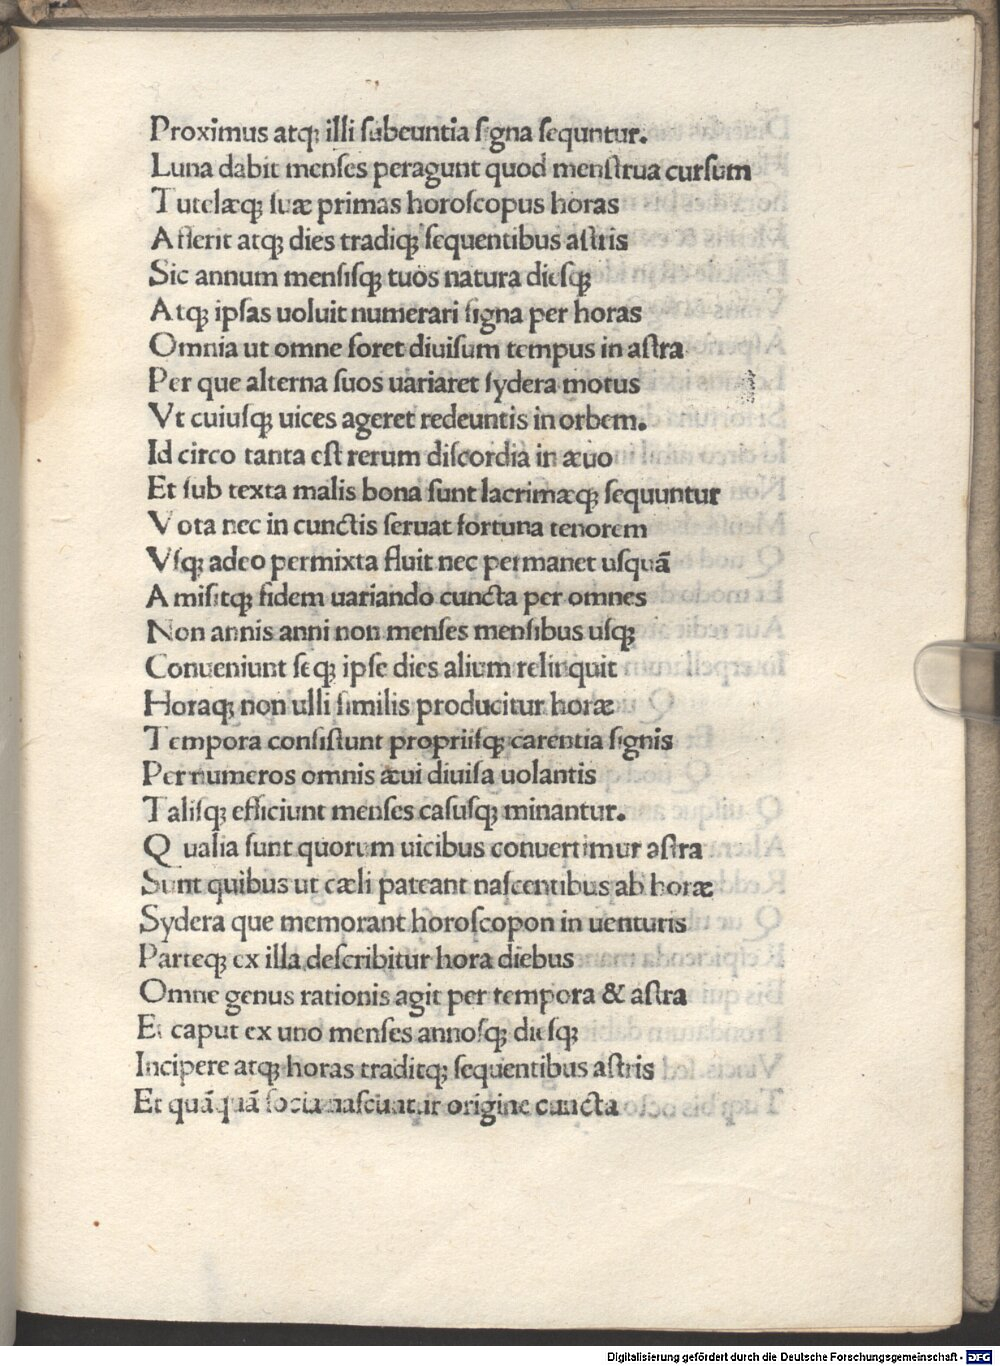 Proximus atqꝫ illi ſubeuntia ſigna ſequntur.
Luna dabit menſes peragunt quod menſtrua curſum
Tutelæqꝫ ſuæ primas horoſcopus horas
Aſſerit atqꝫ dies tradiqꝫ ſequentibus aſtris
Sic annum menſiſqꝫ tuos natura dieſqꝫ
Atqꝫ ipſas uoluit numerari ſigna per horas
Omnia ut omne foret diuiſum tempus in aſtra
Per que alterna ſuos uariaret ſydera motus
Vt cuiuſqꝫ uices ageret redeuntis in orbem.
Id circo tanta eſt rerum diſcordia in æuo
Et ſub texta malis bona ſunt lacrimæqꝫ ſequuntur
Vota nec in cunctis ſeruat fortuna tenorem
Vſqꝫ adeo permixta fluit nec permanet uſquã
Amiſitqꝫ fidem uariando cuncta per omnes
Non annis anni non menſes menſibus uſqꝫ
Conueniunt ſeqꝫ ipſe dies alium relinquit
Horaqꝫ non ulli ſimilis producitur horæ
Tempora conſiſtunt propriiſqꝫ carentia ſignis
Per numeros omnis æui diuiſa uolantis
Taliſqꝫ efficiunt menſes caſuſqꝫ minantur.
Qualia ſunt quorum uicibus conuertimur aſtra
Sunt quibus ut cæli pateant naſcentibus ab horæ
Sydera que memorant horoſcopon in uenturis
Parteqꝫ ex illa deſcribitur hora diebus
Omne genus rationis agit per tempora & aſtra
Et caput ex uno menſes annoſqꝫ dieſqꝫ
Incipere atqꝫ horas traditqꝫ ſequentibus aſtris
Et quãquã ſocia naſcuntur origine cuncta
Digitalisierung gefördert durch die Deutsche Forschungsgemeinschaft - DFG